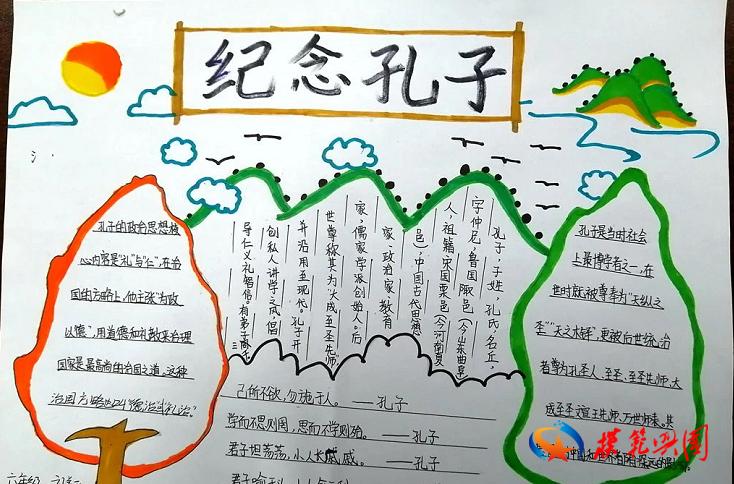 纪念孔子
孔子的政治思想核
心内容是"礼"与"仁",在治
国的方略上,他主张"为政
以德",用道德和礼教来治理
国家是最高尚的治国之道。这种
治国方略也叫"德治"或"礼治"。
孔子,子姓,孔氏,名丘,
字仲尼,鲁国陬邑(今山东曲阜
人,祖籍宋国栗邑(今河南夏
邑),中国古代思想
家、政治家、教育
家,儒家学派创始人。后
世尊称其为"大成至圣先师"
并沿用至现代。孔子开
创私人讲学之风,倡
导仁义礼智信。有弟子三千
孔子是当时社会
上最博学者之一,在
世时就被尊奉为"天纵之
圣""天之木铎",更被后世统治
者尊为孔圣人、至圣、至圣先师、大
成至圣宣王先师、万世师表。其
己所不欲,勿施于人。——孔子
学而不思则罔,思而不学则殆。——孔子
君子坦荡荡,小人长戚戚。——孔子
六年级